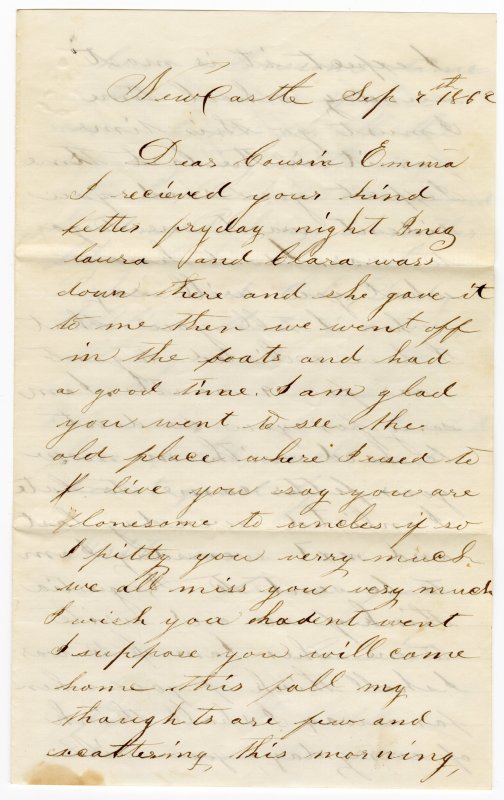 New Castle Sep 8th 186
Dear Cousin Emma
I recieved your kind
letter fryday night Inez
laura and Clara wass
down there and she gave it
to me then we went off
in the boats and had
a good time. I am glad
you went to see the
old place where I used to
live you say you are
lonesome to uncles if so
I pitty you verry much.
we all miss you very much
I wish you hadent went
I suppose you will come
home this fall my
thoughts are few and
scattering, this morning,